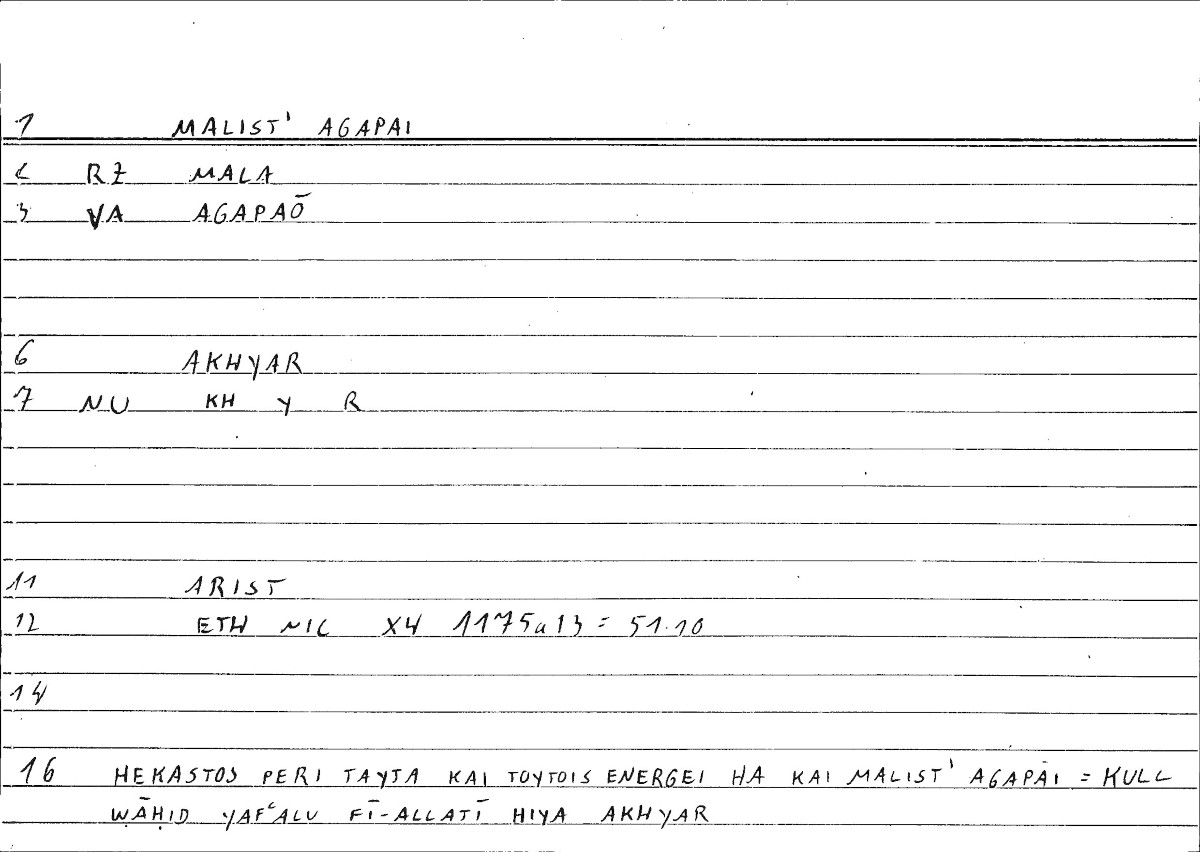 1 MALIST' AGAPAI
2 RZ MALA
3 VA AGAPAŌ
6 AKHYAR
7 NU KH Y R
11 ARIST
12 ETH NIC X4 1175a13 = 51.10
14
16 HEKASTOS PERI TAYTA KAI TOYTOIS ENERGEI HA KAI MALIST' AGAPĀI = KULL
WĀḤID YAFʿALU FĪ-ALLATĪ HIYA AKHYAR